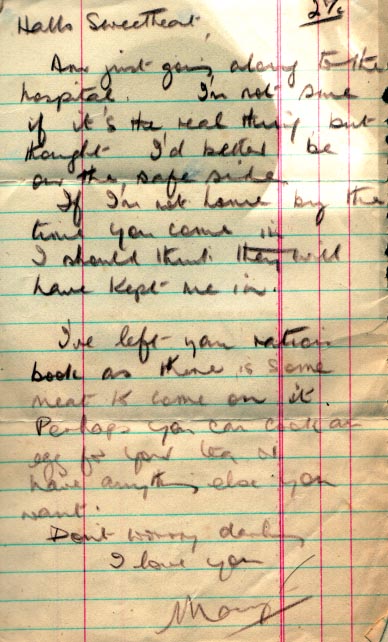 2/-
Hallo Sweetheart,
Am just going along to the
hospital. I'm not sure
if it's the real thing but
thought I'd better be
on the safe side
If I'm not home by the
time you come in
I should think they will
have kept me in.
I've left your ration
book as there is some
meat to come on it.
Perhaps you can cook an
egg for your tea or
have anything else you
want.
Dont worry darling
I love you